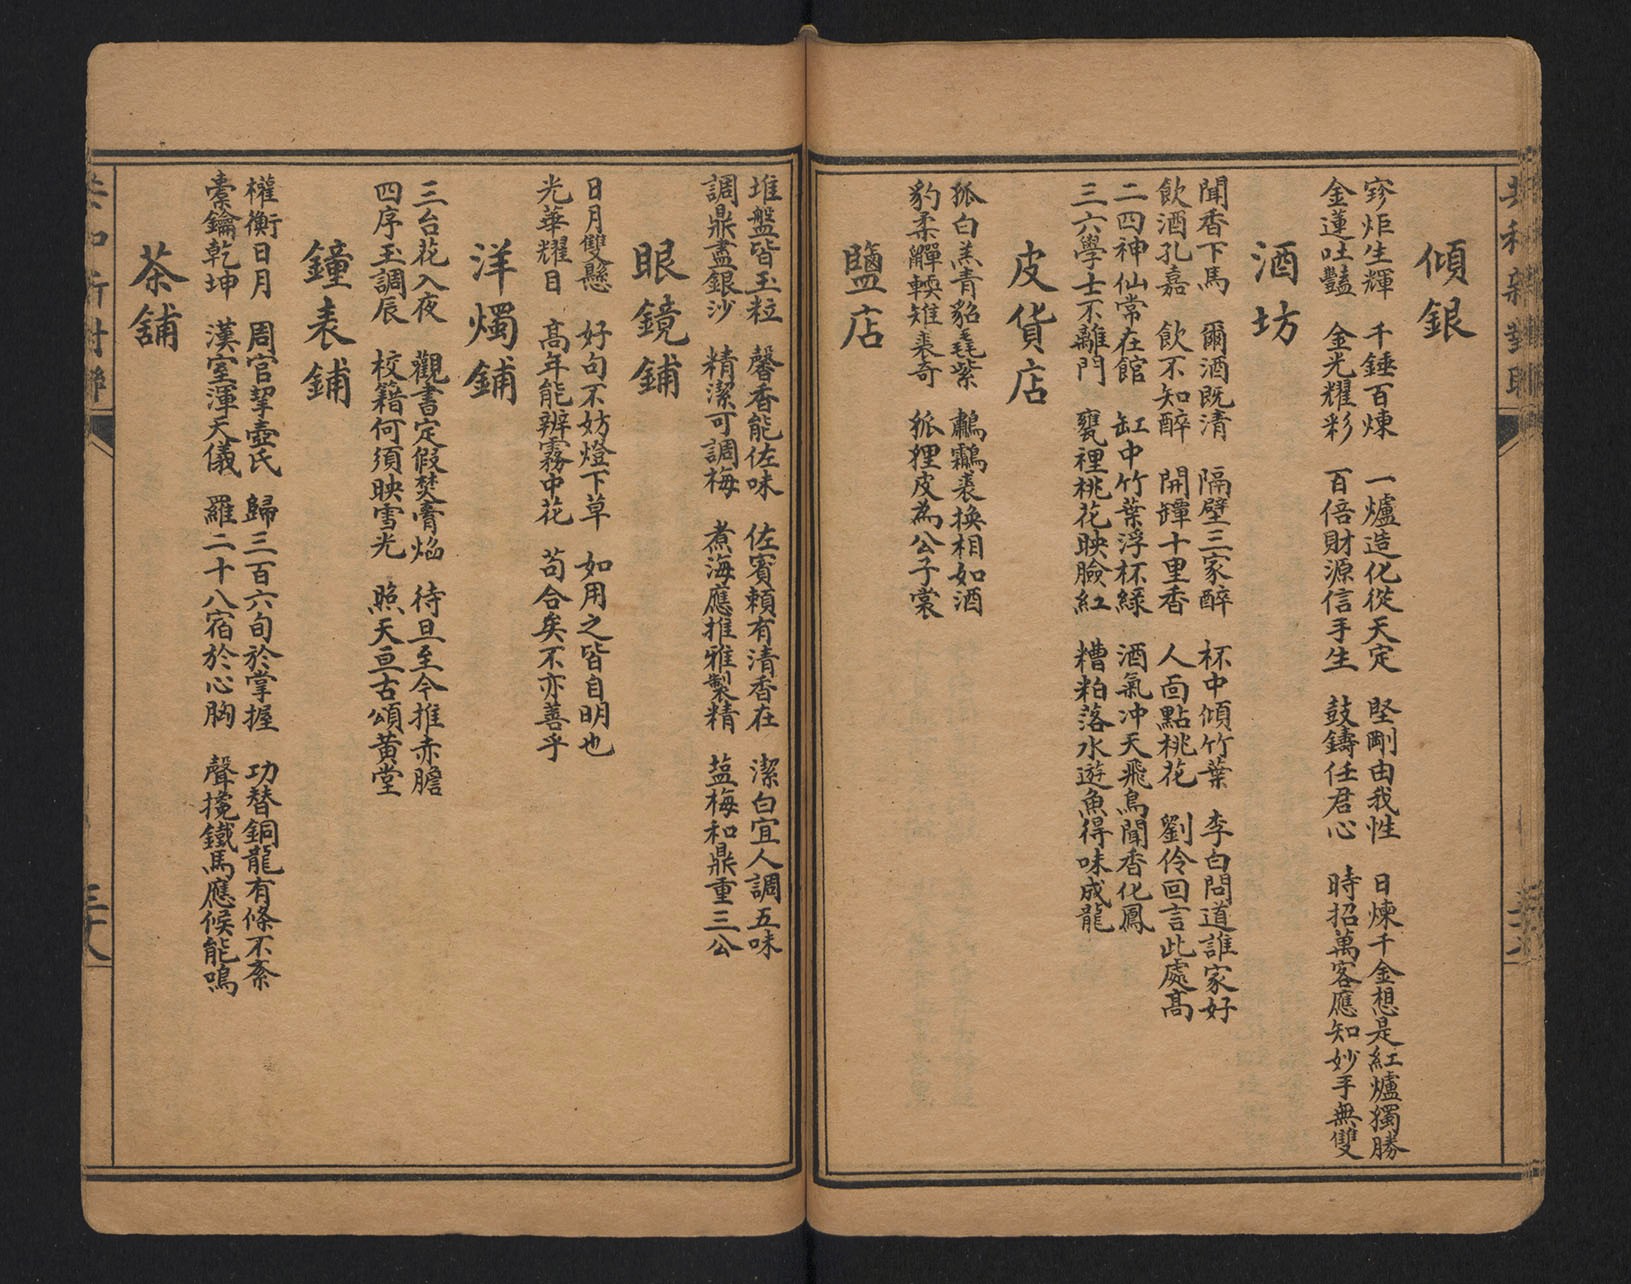 傾銀
千錘百煉 一爐造化從天定 堅剛由我性 日煉千金想是紅爐獨勝
金蓮吐豔 金光耀彩 百倍財源信手生 鼓鑄任君心 時招萬客應知妙手無雙
酒坊
聞香下馬 爾酒既清 隔壁三家醉 杯中傾竹葉 李白問道誰家好
飲酒孔嘉 飲不知醉 開罈十里香 人面點桃花 劉伶回言此處高
二四神仙常在館 缸中竹葉浮杯綠 酒氣冲天飛鳥聞香化鳳
三六學士不離門 甕裡桃花映臉紅 糟粕落水遊魚得味成龍
皮貨店
狐白羔青貂毳紫 鷫鸘裘換相如酒
豹柔貚輭雉裘奇 狐狸皮為公子裳
鹽店
堆盤皆玉粒 馨香能佐味 佐賓頼有清香在 潔白宜人調五味
調鼎盡銀沙 精潔可調梅 煮海應推雅製精 塩梅和鼎重三公
眼鏡鋪
日月雙懸 好句不妨燈下草 如用之皆自明也
光華耀目 高年能辨霧中花 苟合矣不亦善乎
洋燭鋪
三台花入夜 觀書定假焚膏焰 待旦至今推赤膽
四序玉調辰 校籍何須映雪光 照天亘古頌黃堂
鐘表鋪
權衡日月 周官挈壺氏 歸三百六旬於掌握 功替銅龍有條不紊
橐鑰乾坤 漢室渾天儀 羅二十八宿於心胸 聲攙鐵馬應候能鳴
茶舖
共和新對聯
三十八